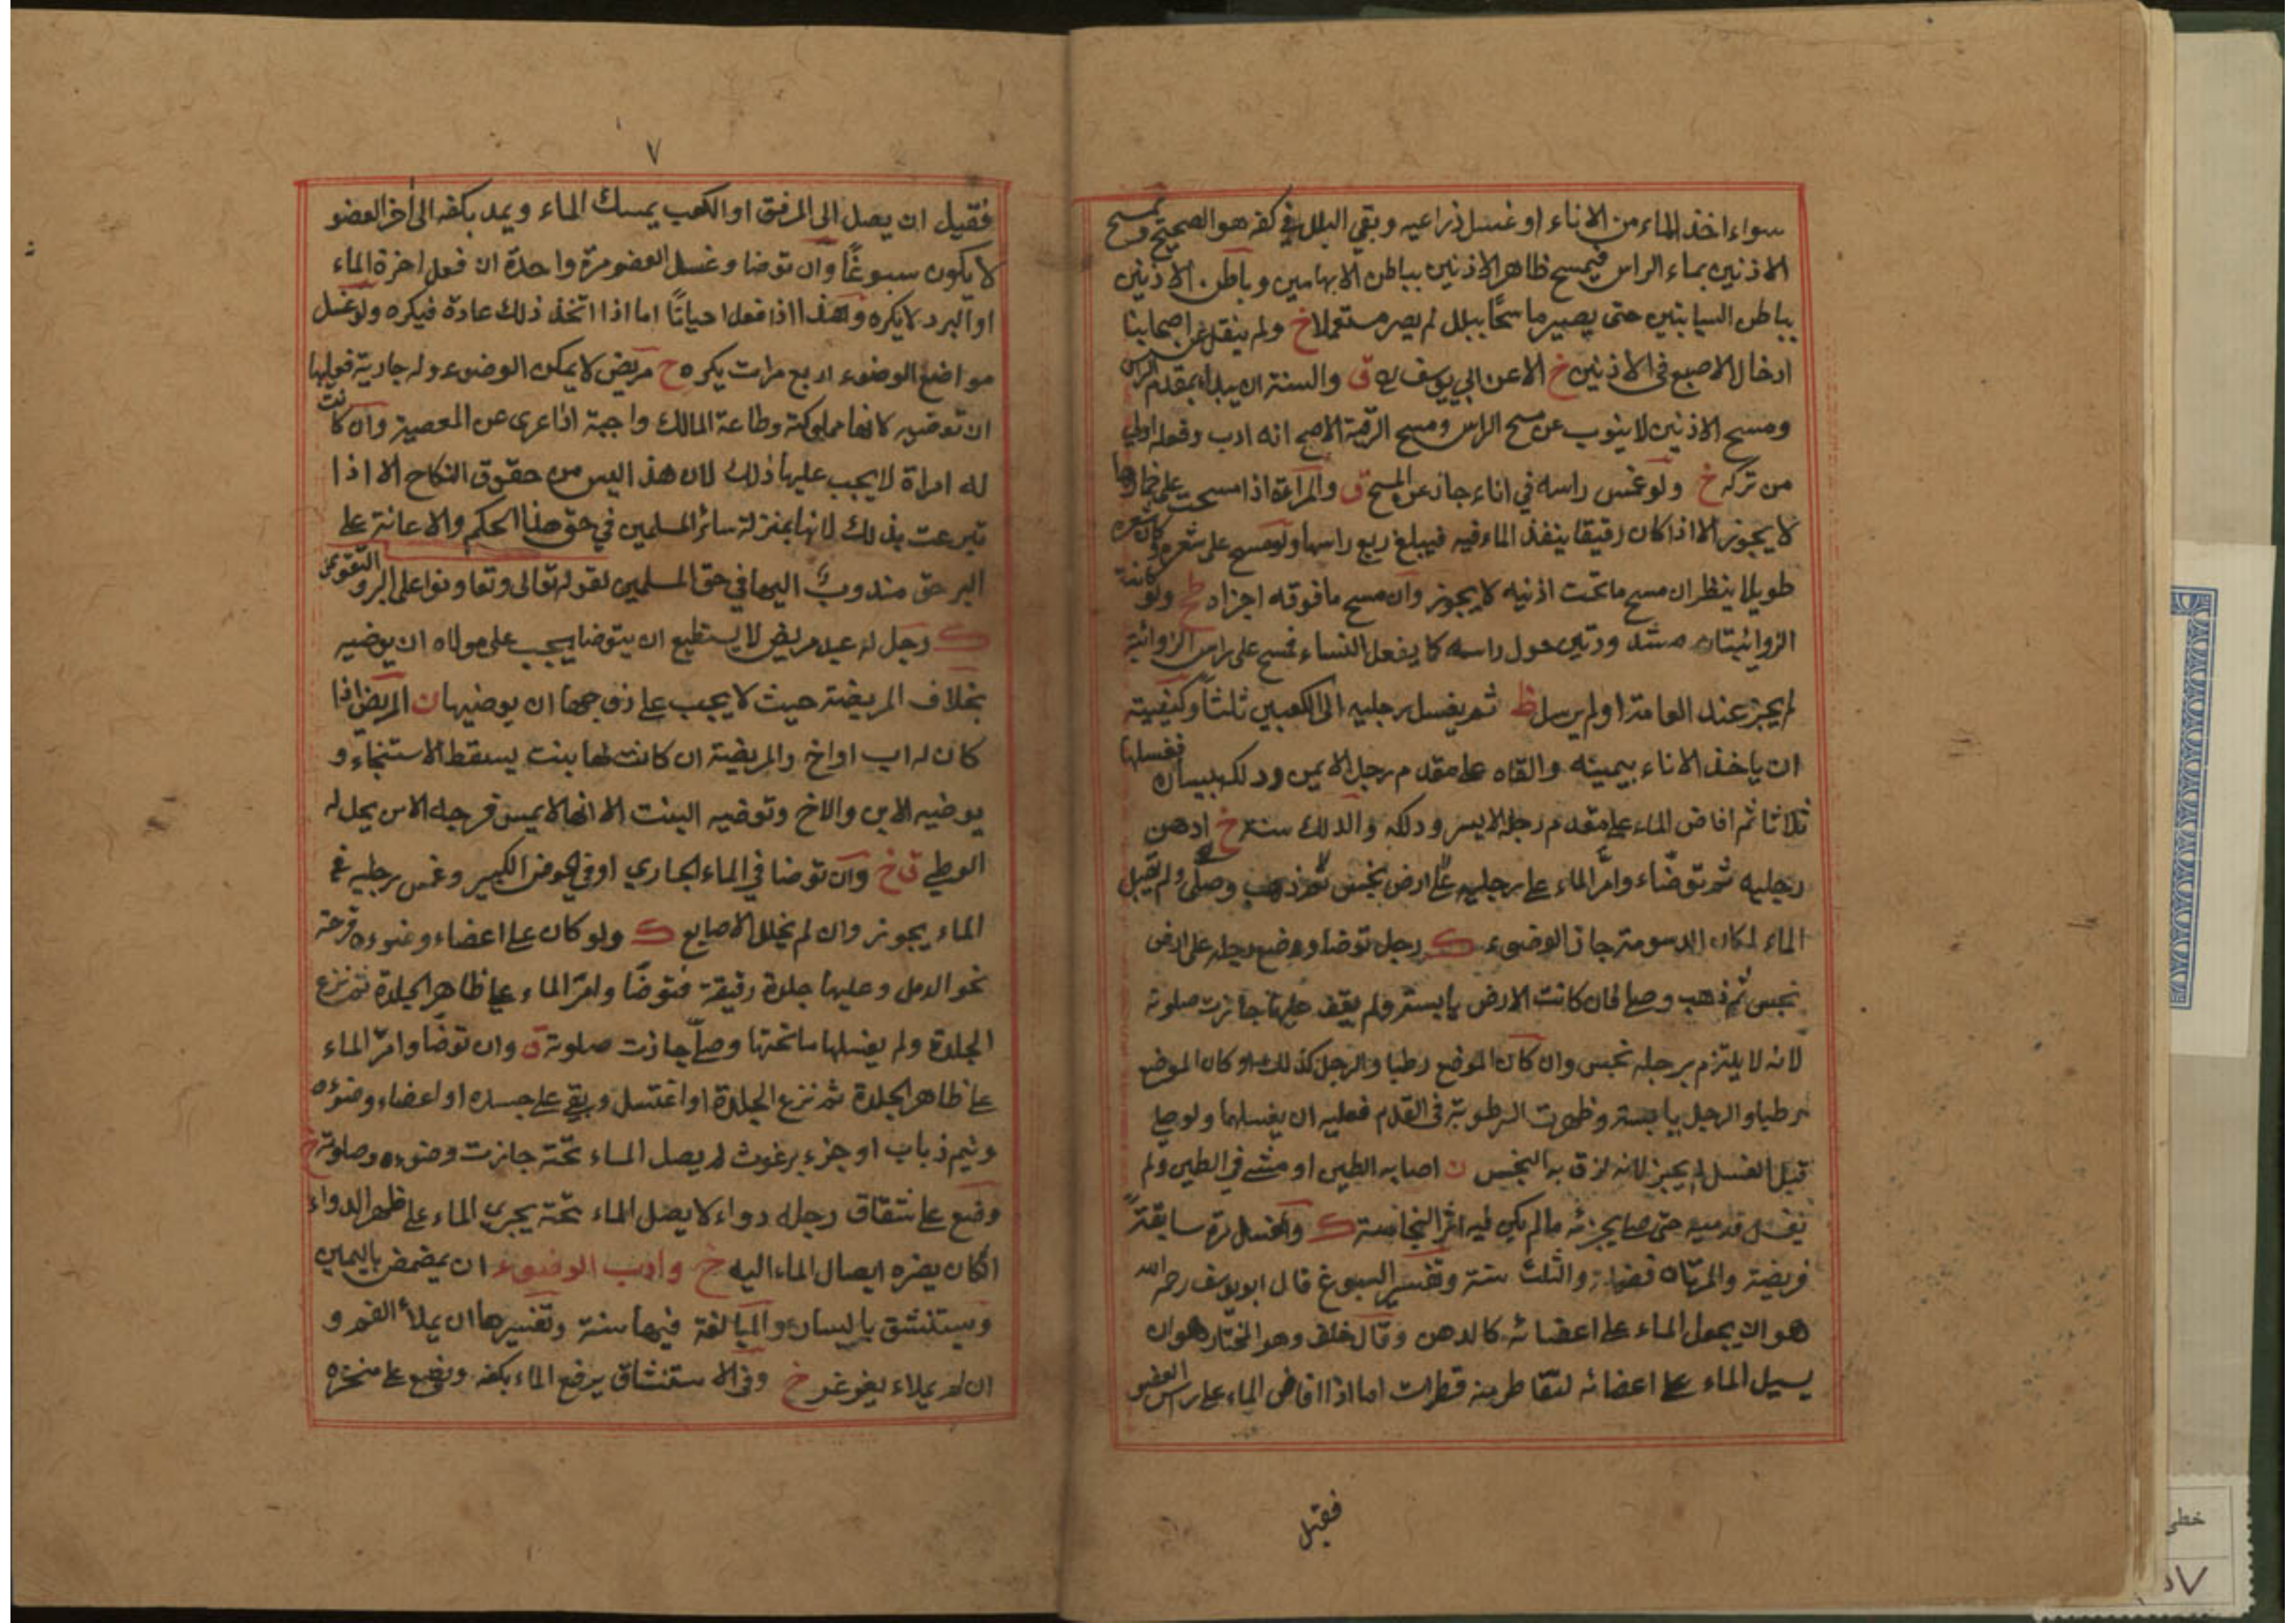 سواء اخذ الماء من الاناء او غسل ذراعيه وبقي البلل في كفه هو الصحيح ويمسح
الاذنين بماء الراس فيمسح ظاهر الاذنين بباطن الابهامين وباطن الاذنين
بباطن السبابتين حتى يصير ماسحًا ببلل لم يصر مستعملا خ ولم ينقل عن اصحابنا
ادخال الاصبع في الاذنين خ الا عن ابي يوسف ره ق والسنة ان يبدأ بمقدم الراس
ومسح الاذنين لا ينوب عن مسح الراس ومسح الرقبة الاصح انه ادب وفعله اولى
من تركه خ ولو غمس راسه في اناء جاز عن المسح ق والمراءة اذا مسحت على خمارها
لا يجوز الا اذا كان رقيقا ينفذ الماء فيه فيبلغ ربع راسها ولو مسح على شعره وكان شعره
طويلا ينظر ان مسح ما تحت اذنيه لا يجوز وان مسح ما فوقه اجزاه ط ولو كانت
الذوائبتان مشدودتين حول راسه كما يفعل النساء فمسح على راس الذوائبة
لم يجز عند العامة او لم يرسل ظ ثم يغسل رجليه الى الكعبين ثلثاً وكيفيته
ان ياخذ الاناء بيمينه والقاه على مقدم رجل الايمن ودلكه بيساره فغسلها
ثلاثا ثم افاض الماء على مقدم رجله الايسر ودلكه والدلك سنة خ ادهن
رجليه ثم توضاء وامرّ الماء على رجليه ولم يقبل
الماء لمكان الدسومة جاز الوضوء ك رجل توضا ووضع رجله على ارض
نجس ثم ذهب وصلى فان كانت الارض يابسة ولم يقف عليها جازت صلوته
لانه لا يلتزم برجله نجس وان كان الموضع رطبا والرجل كذلك او كان الموضع
رطبا والرجل يابسة وظهرت الرطوبة في القدم فعليه ان يغسلها ولو صلى
قبل الغسل لم يجز لانه لزق به النجس ن اصابه الطين او مشى في الطين ولم
يغسل قدميه حتى صلى يجزئه مالم يكن فيه اثر النجاسة ك والغسل مرة سابقةً
فريضة والمرتان فضيلة والثلث سنة وتفسير السبوغ قال ابو يوسف رحمه الله
هو ان يجعل الماء على اعضائه كالدهن وقال خلف وهو المختار هو ان
يسيل الماء على اعضائه لتقاطر منه قطرات اما اذا افاض الماء على راس العضو
فقيل
٧
فقيل ان يصل الى المرفق او الكعب يمسك الماء ويمد بكفه الى اخر العضو
لا يكون سبوغًا وان توضا وغسل العضو مرة واحدة ان فعل لعزة الماء
او البرد لا يكره وهذا اذا فعل احيانًا اما اذا اتخذ ذلك عادة فيكره ولو غسل
مواضع الوضوء اربع مرات يكره ح مريض لا يمكن الوضوء وله جارية فعليها
ان توضيه لانها مملوكته وطاعة المالك واجبة اذا عرى عن المعصية وان كانت
له امراة لا يجب عليها ذلك لان هذا ليس من حقوق النكاح الا اذا
تبرعت بذلك لانها بمنزلة سائر المسلمين في حق هذا الحكم والاعانة على
البر حق مندوب اليها في حق المسلمين لقوله تعالى وتعاونوا على البر والتقوى
ك رجل له عبد مريض لا يستطيع ان يتوضا يجب على مولاه ان يوضيه
بخلاف المريضة حيث لا يجب على زوجها ان يوضيها ن المريض اذا
كان له اب او اخ والمريضة ان كانت لها بنت يسقط الاستنجاء و
يوضيه الابن والاخ وتوضيه البنت الا انها لا يمس فرجه الا من يحل له
الوطي ق خ وان توضا في الماء الجاري او في الحوض الكبير وغمس رجليه في
الماء يجوز وان لم يخلل الاصابع ك ولو كان على اعضاء وضوءه قرحة
نحو الدمل وعليها جلدة رقيقة فتوضّا وامرّ الماء على ظاهر الجلدة ثم نزع
الجلدة ولم يغسلها ما تحتها وصلّى جازت صلوته ق وان توضّا وامرّ الماء
على ظاهر الجلدة ثم نزع الجلدة او اغتسل وبقي على جسده او اعضاء وضوءه
ونيم ذباب او جزء برغوث لم يصل الماء تحته جازت وضوءه وصلوته خ
وضع على شقاق رجله دواء لا يصل الماء تحته يجري الماء على ظهر الدواء
ان كان يضره ايصال الماء اليه خ وادب الوضوء ان يمضمض باليمين
ويستنشق باليسار والمبالغة فيها سنة وتفسيرها ان يملأ الفم و
ان لم يملاء يغرغر خ وفي الاستنشاق يرفع الماء بكفه ويضع على منخره
خطي